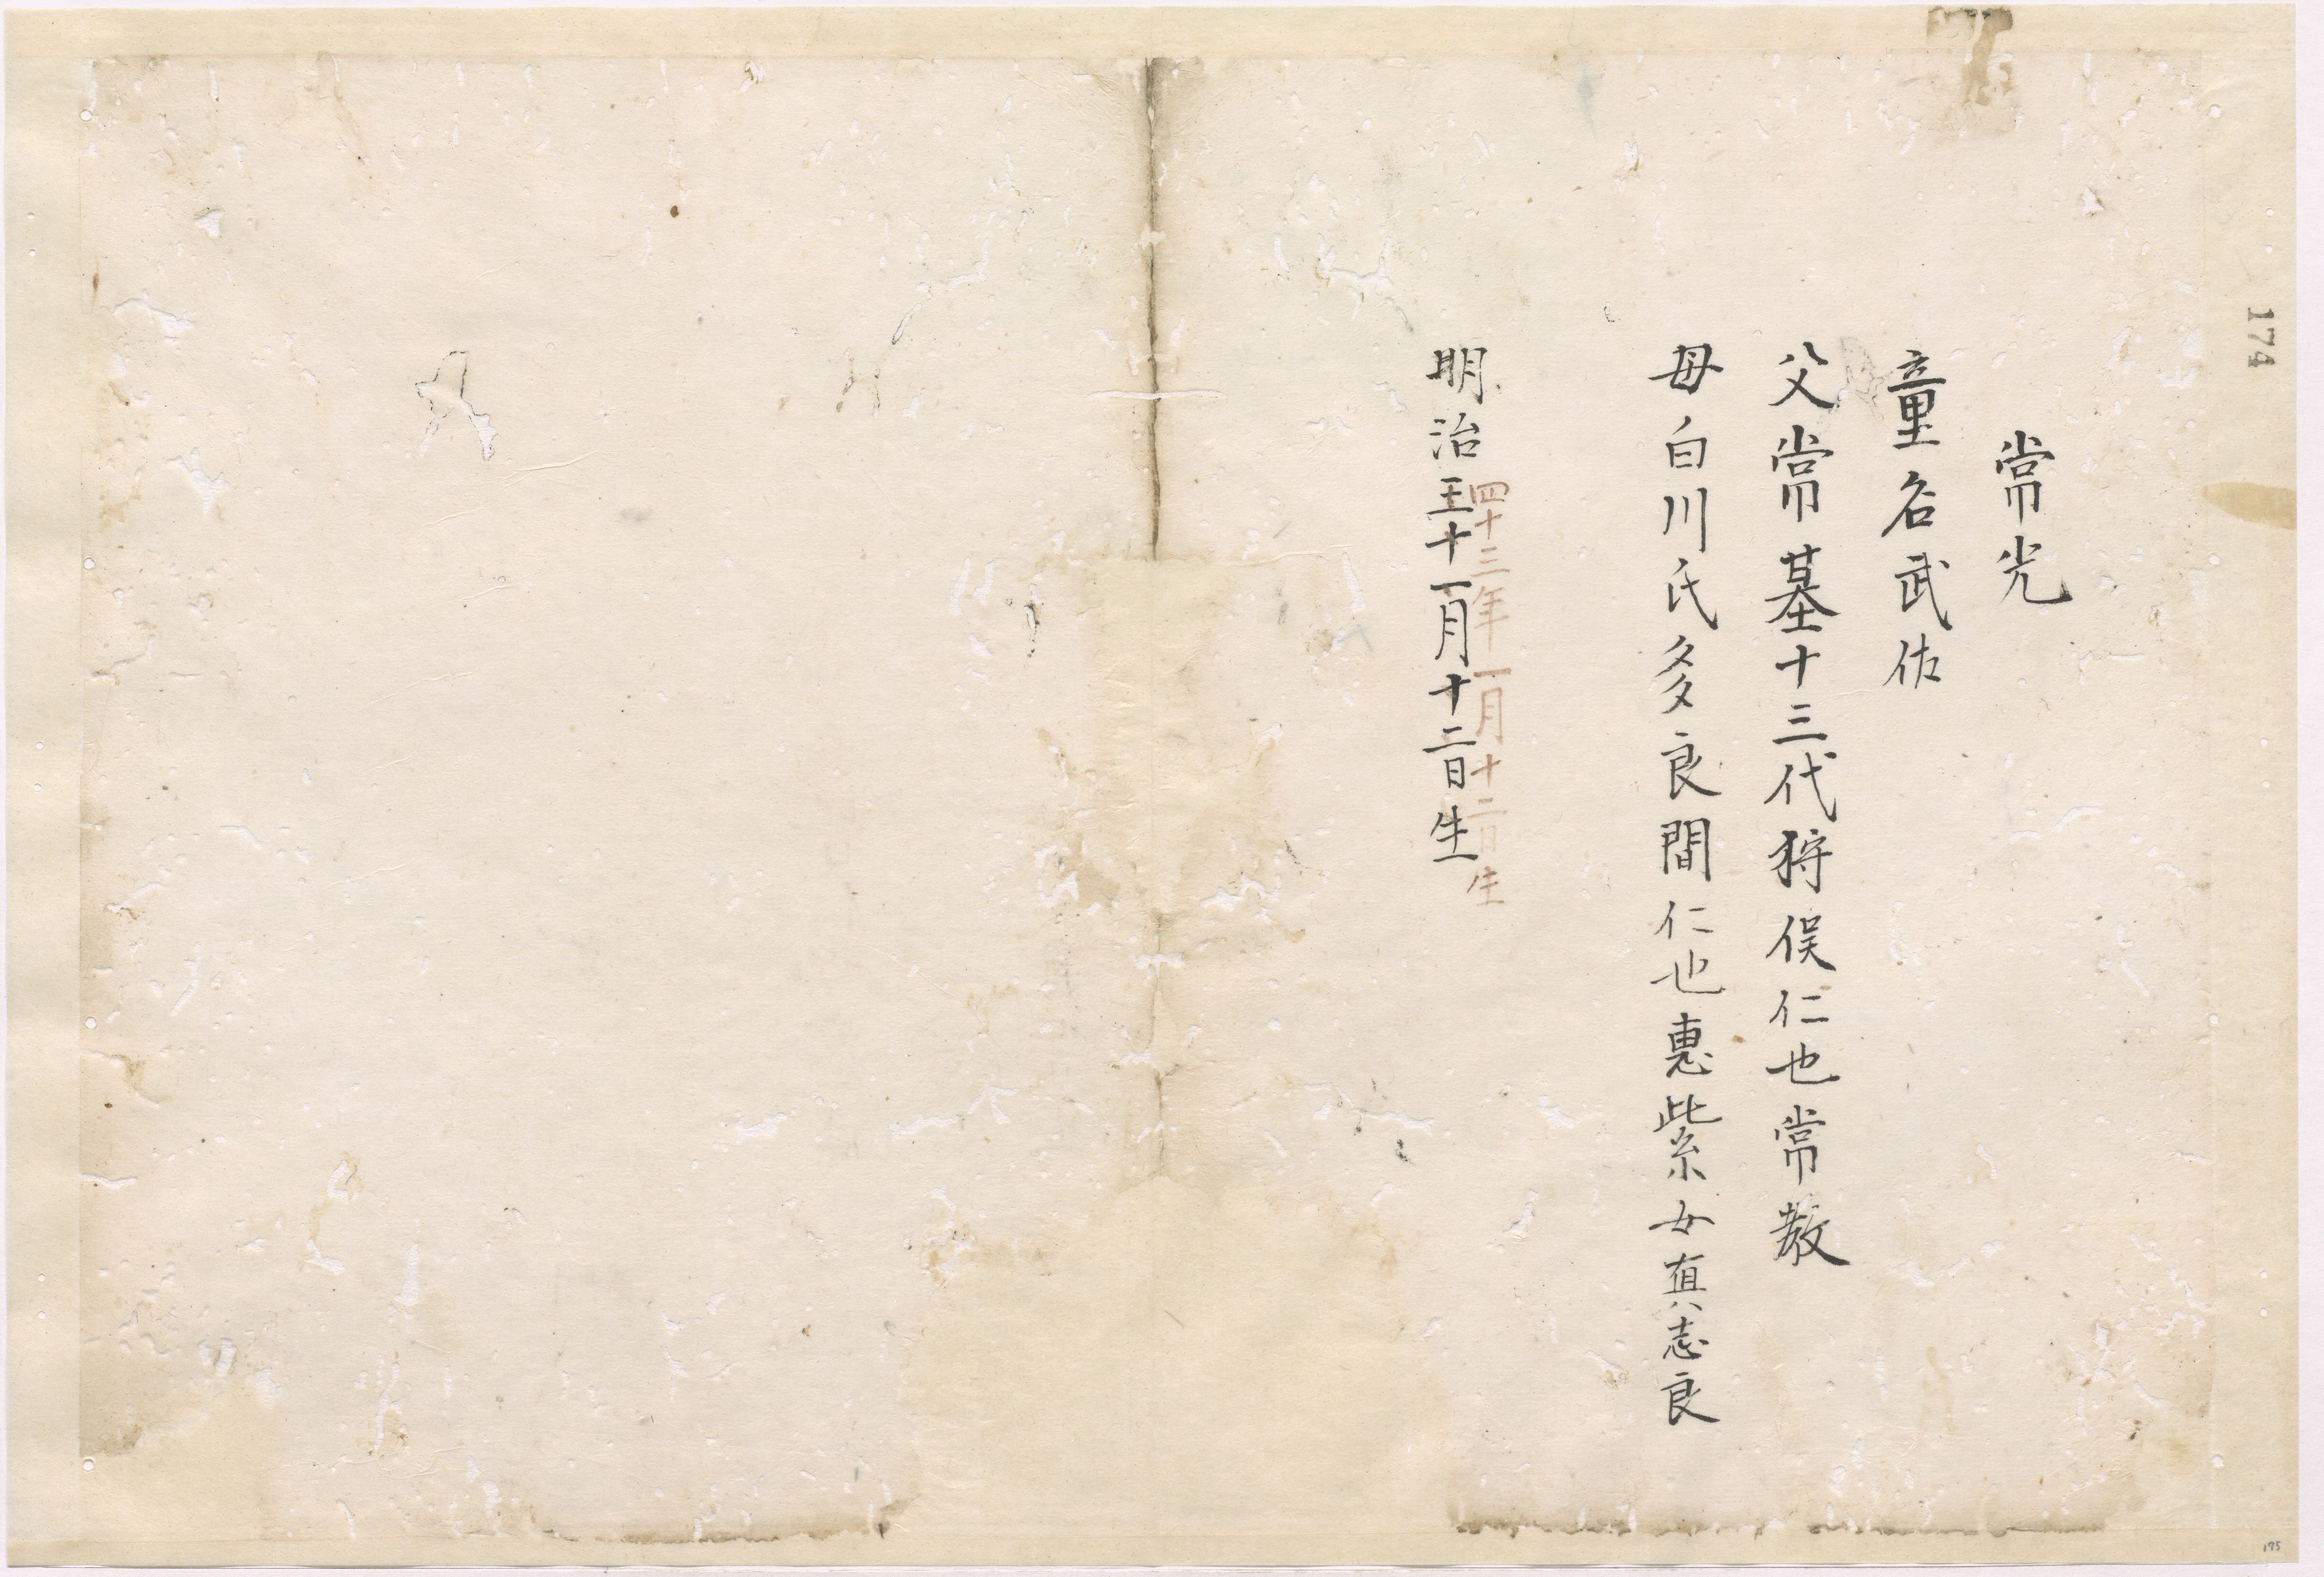 174
常光
童名武佑
父常基十三代狩俣仁也常教
母白川氏多良間仁也惠紫女真志良
四十三年一月十二日生
明治 十一月十二日生
175